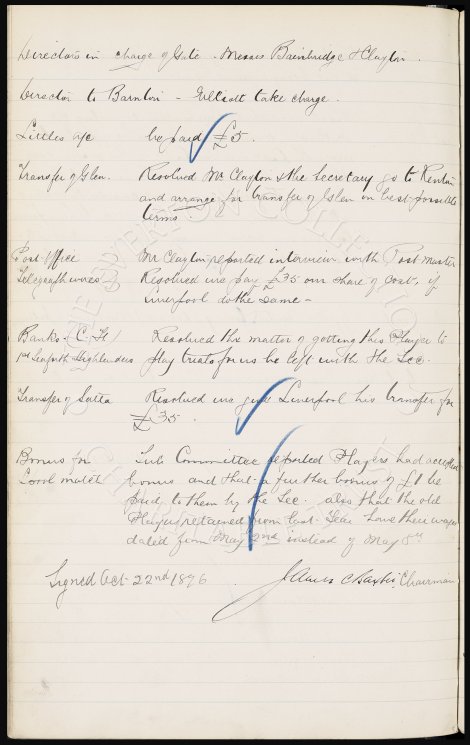 Directors in charge of Gate - Messrs Bainbridge & Clayton.
Director to Barnton - Elliott take charge.
Littles a/c be paid £5.
Transfer of Glen. Resolved Mr Clayton & the Secretary go to Renton
and arrange for transfer of Glen on best possible
terms.
Post Office Mr Clayton reported interview with Post Master
Telegraph wires Resolved we pay £35 our share of cost, if
Liverpool do the same -
Banks - C. H. Resolved the matter of getting this Player to
1st Seaforth Highlanders play trials for us be left with the Sec.
Transfer of Resolved we give Liverpool his transfer for
£35.
Bonus for Sub Committee reported Players had accepted
Good match bonus and that a further bonus of £1 be
paid to them by the Sec. also that the old
Players retained from last Year have their wages
dated from May 2nd instead of May 8th
Signed Oct 22nd 1896 James C Baxter Chairman
THE EVERTON COLLECTION